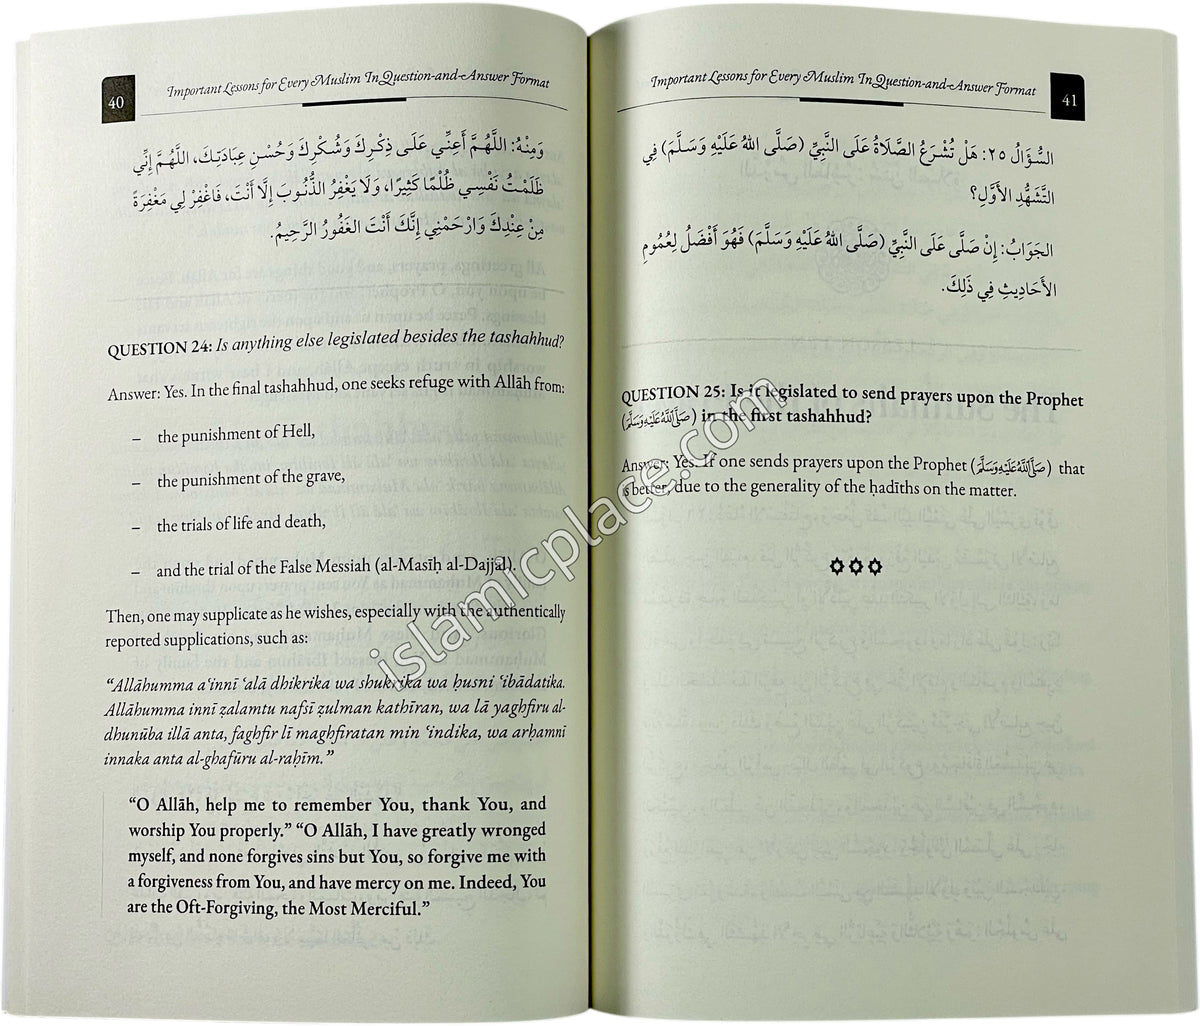 40
Important Lessons for Every Muslim In Question-and-Answer Format
وَمِنْهُ: اللَّهُمَّ أَعِنِّي عَلَى ذِكْرِكَ وَشُكْرِكَ وَحُسْنِ عِبَادَتِكَ، اللَّهُمَّ إِنِّي
ظَلَمْتُ نَفْسِي ظُلْمًا كَثِيرًا، وَلَا يَغْفِرُ الذُّنُوبَ إِلَّا أَنْتَ، فَاغْفِرْ لِي مَغْفِرَةً
مِنْ عِنْدِكَ وَارْحَمْنِي إِنَّكَ أَنْتَ الغَفُورُ الرَّحِيمُ.
QUESTION 24: Is anything else legislated besides the tashahhud?
Answer: Yes. In the final tashahhud, one seeks refuge with Allāh from:
– the punishment of Hell,
– the punishment of the grave,
– the trials of life and death,
– and the trial of the False Messiah (al-Masīḥ al-Dajjāl).
Then, one may supplicate as he wishes, especially with the authentically
reported supplications, such as:
“Allāhumma aʿinnī ʿalā dhikrika wa shukrika wa ḥusni ʿibādatika.
Allāhumma innī ẓalamtu nafsī ẓulman kathīran, wa lā yaghfiru al-
dhunūba illā anta, faghfir lī maghfiratan min ʿindika, wa arḥamnī
innaka anta al-ghafūru al-raḥīm.”
“O Allāh, help me to remember You, thank You, and
worship You properly.” “O Allāh, I have greatly wronged
myself, and none forgives sins but You, so forgive me with
a forgiveness from You, and have mercy on me. Indeed, You
are the Oft-Forgiving, the Most Merciful.”
Important Lessons for Every Muslim In Question-and-Answer Format
41
السُّؤَالُ ٢٥: هَلْ تُشْرَعُ الصَّلَاةُ عَلَى النَّبِيِّ (صَلَّى اللهُ عَلَيْهِ وَسَلَّمَ) فِي
التَّشَهُّدِ الأَوَّلِ؟
الجَوَابُ: إِنْ صَلَّى عَلَى النَّبِيِّ (صَلَّى اللهُ عَلَيْهِ وَسَلَّمَ) فَهُوَ أَفْضَلُ لِعُمُومِ
الأَحَادِيثِ فِي ذَلِكَ.
QUESTION 25: Is it legislated to send prayers upon the Prophet
(صَلَّى اللهُ عَلَيْهِ وَسَلَّمَ) in the first tashahhud?
Answer: Yes. If one sends prayers upon the Prophet (صَلَّى اللهُ عَلَيْهِ وَسَلَّمَ) that
is better, due to the generality of the ḥadīths on the matter.
islamicplace.com